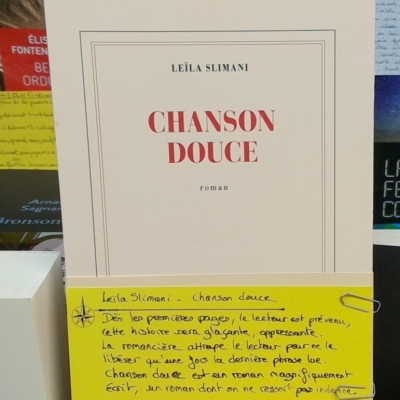 ÉLIS
FONTEN
BE
ORD
LEÏLA SLIMANI
CHANSON
DOUCE
roman
Arna
Sagnar
Bronson
LA
FE
CO
Leïla Slimani - Chanson douce
Dès les premières pages, le lecteur est prévenu,
cette histoire sera glaçante, oppressante.
La romancière attrape le lecteur pour ne le
libérer qu'une fois la dernière phrase lue.
Chanson douce est un roman magnifiquement
écrit, un roman dont on ne ressort pas indemne.